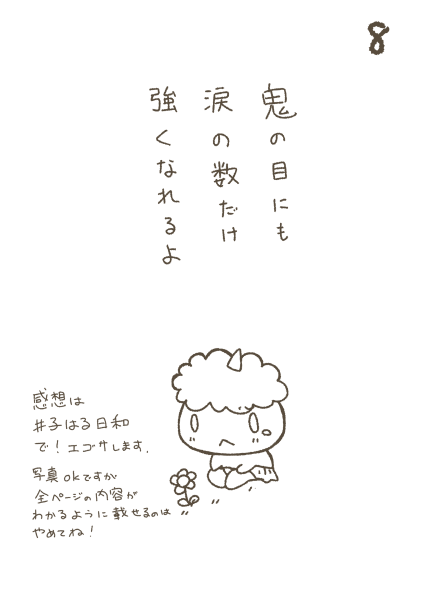 8
鬼の目にも
涙の数だけ
強くなれるよ
感想は
#子はる日和
で!エゴサします.
写真okですが
全ページの内容が
わかるように載せるのは
やめてね!